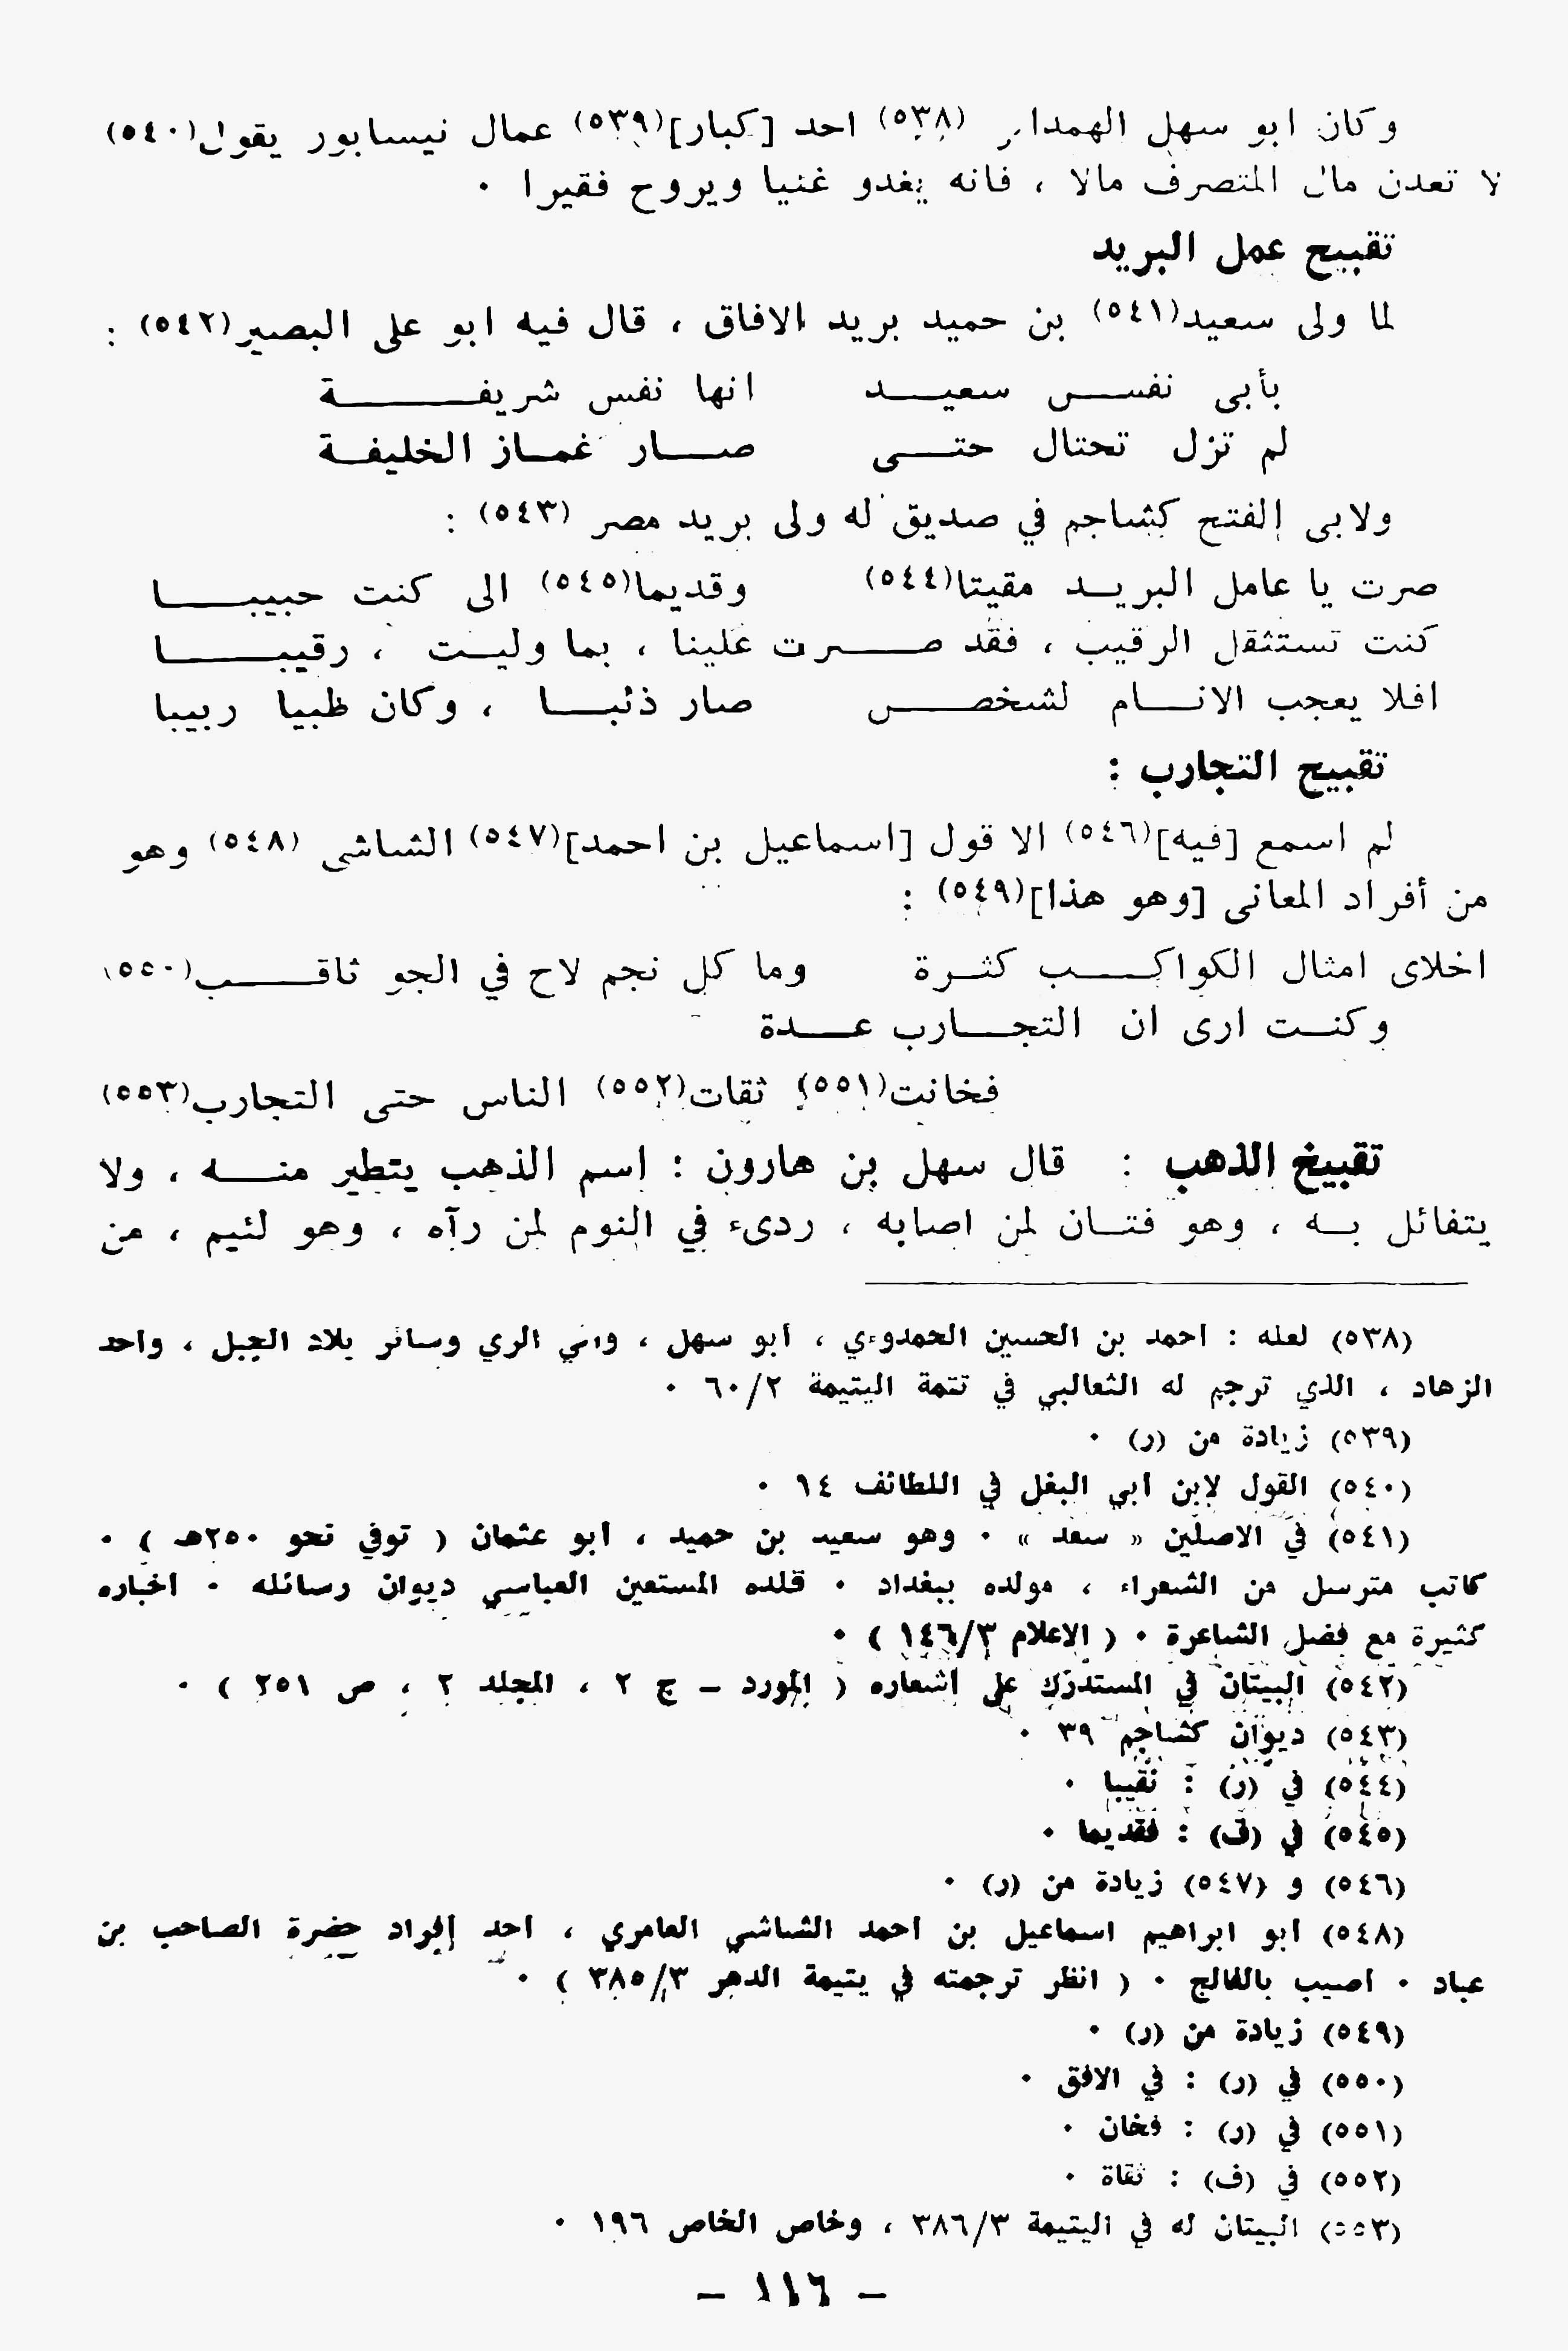 وكان ابو سهل (٥٣٨) احد [كبار](٥٣٩) عمال نيسابور يقول(٥٤٠)
لا تعدن مال المتصرف مالا ، فانه يغدو غنيا ويروح فقيرا ٠
تقبيح عمل البريد
لما ولى سعيد(٥٤١) بن حميد بريد الافاق ، قال فيه ابو على البصير(٥٤٢) :
بأبى نفس سعيد انها نفس شريفة
لم تزل تحتال حتى صار غماز الخليفة
ولابى الفتح كشاجم في صديق له ولى بريد مصر (٥٤٣) :
صرت يا عامل البريد مقيتا(٥٤٤) وقديما(٥٤٥) الى كنت حبيبا
كنت تستثقل الرقيب ، فقد صرت علينا ، بما وليت ، رقيبا
افلا يعجب الانام لشخص صار ذئبا ، وكان ظبيا ربيبا
تقبيح التجارب :
لم اسمع [فيه](٥٤٦) الا قول [اسماعيل بن احمد](٥٤٧) الشاشى (٥٤٨) وهو
من أفراد المعانى [وهو هذا](٥٤٩) :
اخلاى امثال الكواكب كثرة وما كل نجم لاح في الجو ثاقب(٥٥٠)
وكنت ارى ان التجارب عدة
فخانت(٥٥١) ثقات(٥٥٢) الناس حتى التجارب(٥٥٣)
تقبيخ الذهب : قال سهل بن هارون : اسم الذهب يتطير منه ، ولا
يتفائل به ، وهو فتان لمن اصابه ، ردىء في النوم لمن رآه ، وهو لئيم ، من
(٥٣٨) لعله : احمد بن الحسين الحمدوءي ، أبو سهل ، والي الري وسائر بلاد الجبل ، واحد
الزهاد ، الذي ترجم له الثعالبي في تتمة اليتيمة ٦٠/٢ ٠
(٥٣٩) زيادة من (ر) ٠
(٥٤٠) القول لابن أبي البغل في اللطائف ١٤ ٠
(٥٤١) في الاصلين « سعد » ٠ وهو سعيد بن حميد ، أبو عثمان ( توفي نحو ٢٥٠هـ ) ٠
كاتب مترسل من الشعراء ، مولده ببغداد ٠ قلده المستعين العباسي ديوان رسائله ٠ اخباره
كثيرة مع فضل الشاعرة ٠ ( الاعلام ١٤٦/٣ ) ٠
(٥٤٢) البيتان في المستدرك على أشعاره ( المورد – ج ٢ ، المجلد ٢ ، ص ٢٥١ ) ٠
(٥٤٣) ديوان كشاجم ٣٩ ٠
(٥٤٤) في (ر) : نقيبا ٠
(٥٤٥) في (ف) : فقديما ٠
(٥٤٦) و (٥٤٧) زيادة من (ر) ٠
(٥٤٨) أبو ابراهيم اسماعيل بن احمد الشاشي العامري ، احد إفراد حضرة الصاحب بن
عباد ٠ اصيب بالفالج ٠ ( انظر ترجمته في يتيمة الدهر ٣٨٥/٣ ) ٠
(٥٤٩) زيادة من (ر) ٠
(٥٥٠) في (ر) : في الافق ٠
(٥٥١) في (ر) : فخان ٠
(٥٥٢) في (ف) : ثقاة ٠
(٥٥٣) البيتان له في اليتيمة ٣٨٦/٣ ، وخاص الخاص ١٩٦ ٠
– ١١٦ –